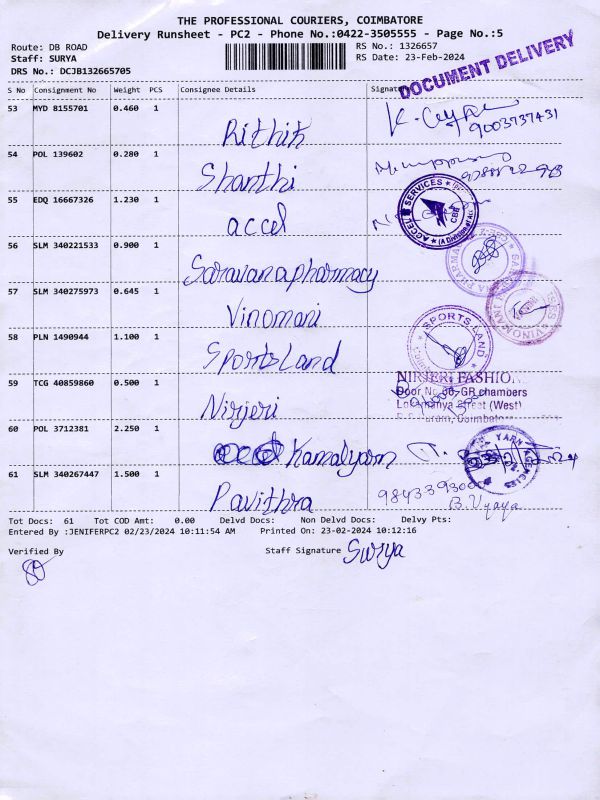 THE PROFESSIONAL COURIERS, COIMBATORE
Delivery Runsheet - PC2 - Phone No.:0422-3505555 - Page No.:5
Route: DB ROAD
RS No.: 1326657
Staff: SURYA
RS Date: 23-Feb-2024
DRS No.: DCJB132665705
DOCUMENT DELIVERY
S No Consignment No Weight PCS Consignee Details Signature
53 MYD 8155701 0.460 1
Rithik
9003737431
54 POL 139602 0.280 1
Shanthi
55 EDQ 16667326 1.230 1
accel
ACCEL SERVICES
CBE
56 SLM 340221533 0.900 1
Saravanapharmacy
57 SLM 340275973 0.645 1
Vinomani
58 PLN 1490944 1.100 1
SportsLand
SPORTS LAND
59 TCG 40859860 0.500 1
Nirjeri
NIRJERI FASHION
Door No. 66-GR chambers
Lokamanya Street (West)
60 POL 3712381 2.250 1
Kamalyarn
YARN AGENCIES
61 SLM 340267447 1.500 1
Pavithra
B. Vijaya
Tot Docs: 61 Tot COD Amt: 0.00 Delvd Docs: Non Delvd Docs: Delvy Pts:
Entered By :JENIFERPC2 02/23/2024 10:11:54 AM Printed On: 23-02-2024 10:12:16
Verified By
Staff Signature Surya